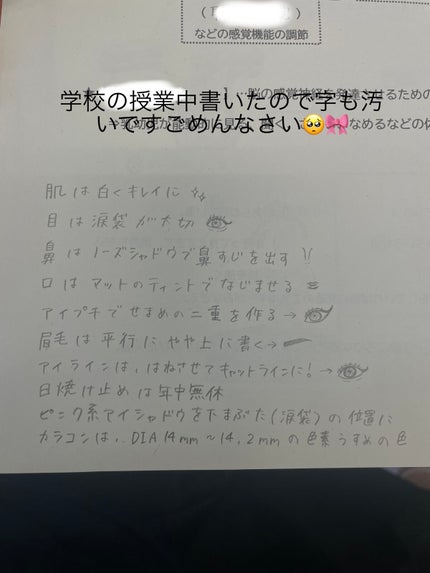 などの感覚機能の調節
学校の授業中書いたので字も汚
いですごめんなさい🥺🎀
肌は白くキレイに
目は涙袋が大切
鼻はノーズシャドウで鼻すじを出す
口はマットのティントでなじませる
アイプチでせまめの二重を作る→
眉毛は平行にやや上に書く→
アイラインは、はねさせてキャットラインに!→
日焼け止めは年中無休
ピンク系アイシャドウを下まぶた(涙袋)の位置に
カラコンは、DIA14mm〜14.2mmの色素うすめの色